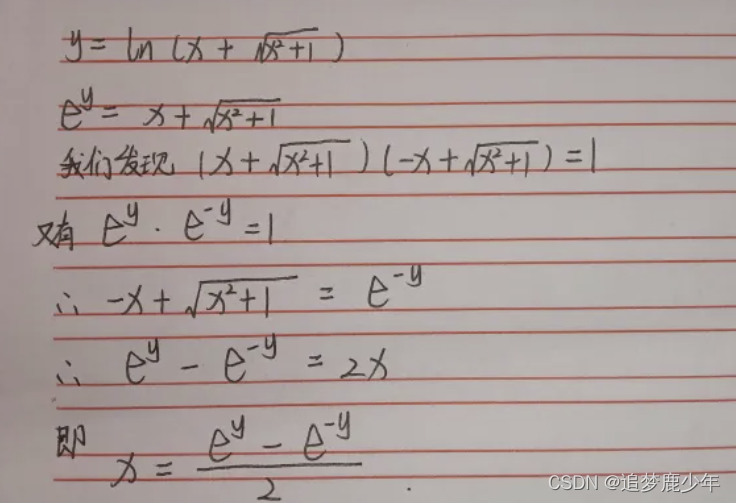 y = ln (x + √(x²+1) )
e^y = x + √(x²+1)
我们发现 (x + √(x²+1) ) (-x + √(x²+1) ) = 1
又有 e^y · e^-y = 1
∴ -x + √(x²+1) = e^-y
∴ e^y - e^-y = 2x
即 x = (e^y - e^-y)/2 .
CSDN @追梦鹿少年